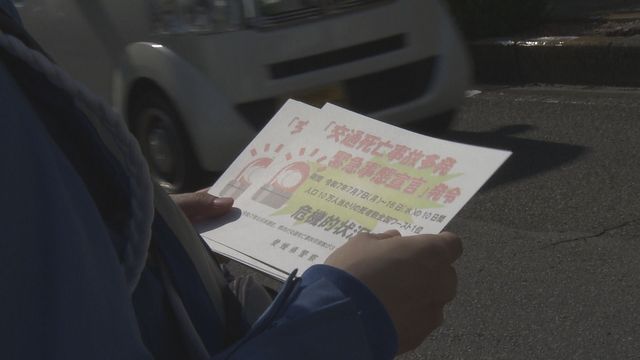 「交通死亡事故多発
緊急事態宣言」発令
期間 令和7年7月7日(月)~16日(水)の10日間
人口10万人当たりの死者数全国ワースト1位
危機的状況
愛媛県警察